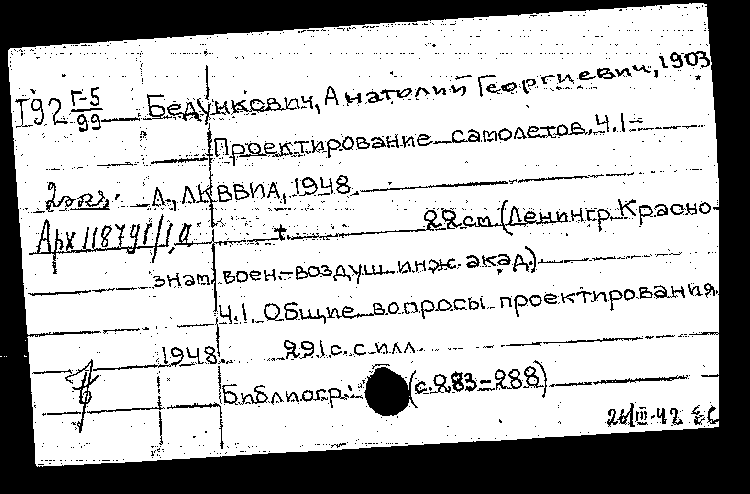 Т92 Г-5/99 Бедункович, Анатолий Георгиевич, 1903
Проектирование самолетов. Ч.1-
2экз. Л., ЛКВВИА, 1948.
Арх 11879г/1,а т. 22см (Ленингр. Красно-
знам. воен.-воздуш. инж. акад.)
Ч.1. Общие вопросы проектирования.
1948. 291с. с илл.
Библиогр.: (с.283-288)
26/III-42 ЕС